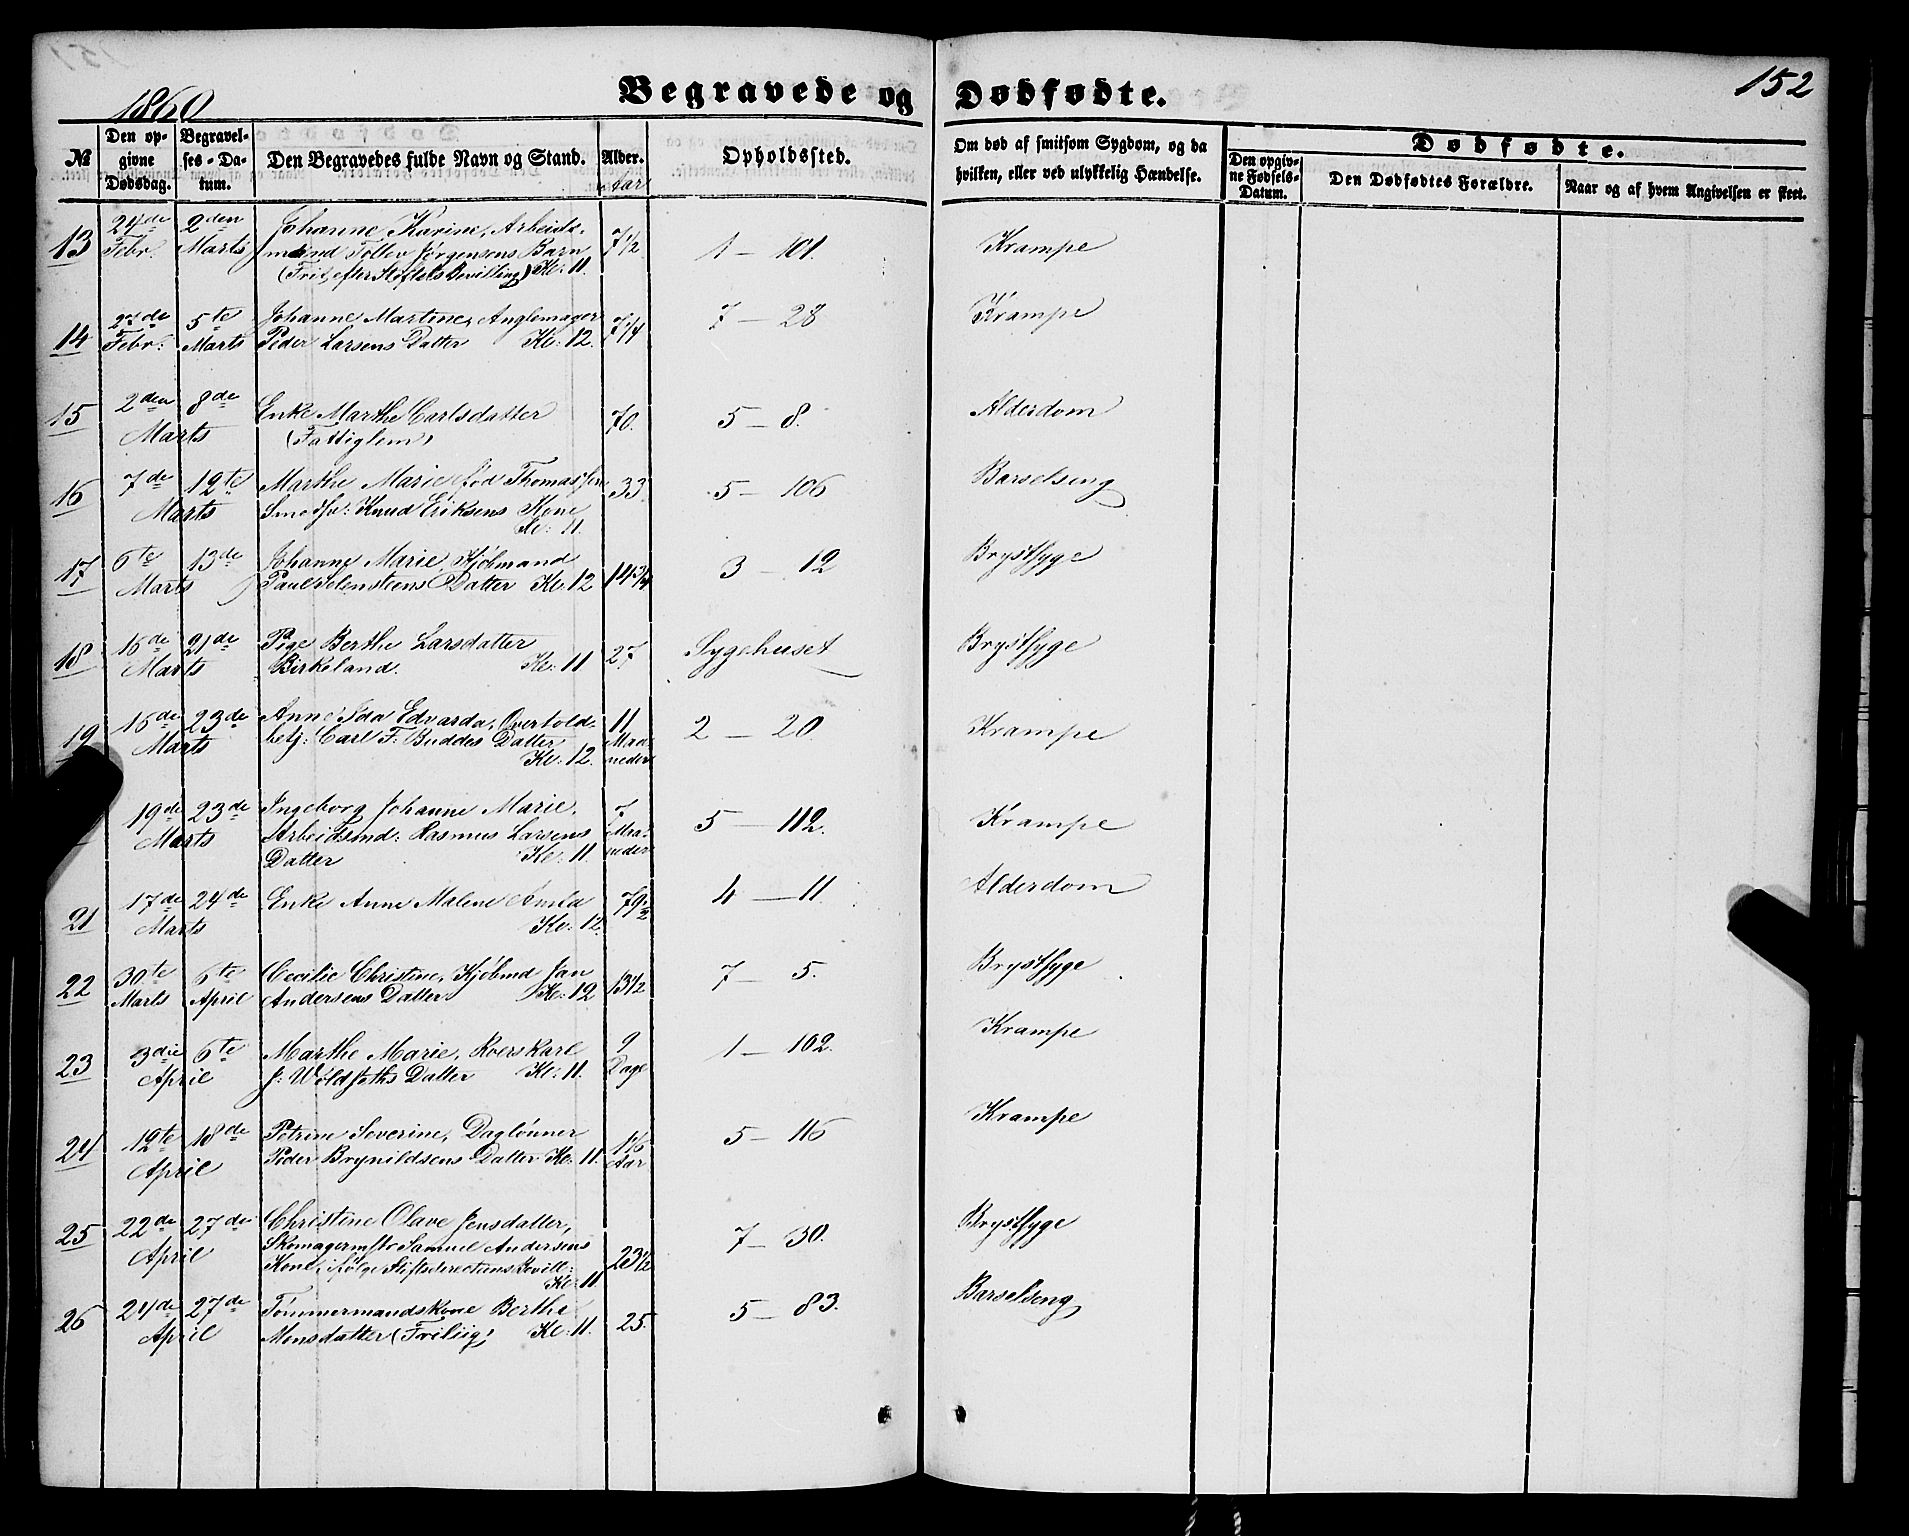 1860
Begravede og Dødfødte.
152
№
Den opgivne Dødsdag.
Begravelses-Datum.
Den Begravedes fulde Navn og Stand.
Alder.
Aar
Opholdssted.
Om død af smitsom Sygdom, og da hvilken, eller ved ulykkelig Hændelse.
Dødfødte.
Den opgivne Fødsels-Datum.
Den Dødfødtes Forældre.
Naar og af hvem Angivelsen er skeet.
13 24de Febr. 2den Marts Johanne Karine, Arbeids-
mand Tollev Jørgensens Barn
(Frit, efter Stiftets Bevilling) Kl: 11. 7 1/2 1 — 101. Krampe
14 27de Febr: 5te Marts Johanne Martine, Anglemager
Peder Larsens Datter Kl: 12. 7 1/4 7 — 28 Krampe
15 2den 8de Marts Enke Marthe Carlsdatter
(Fattiglem) 70. 5 — 8. Alderdom
16 7de 12te Marts Marthe Marie, fød Thomassen
Smedsv: Knud Eriksens Kone
Kl: 11. 33 5 — 106 Barselseng
17 6te 13de Marts Johanne Marie, Kjøbmand
Paul Holensteens Datter Kl: 12 14 3/4 3 — 12 Brystsyge
18 16de 21de Marts Pige Berthe Larsdatter
Birkeland. Kl: 11 27 Sygehuset Brystsyge
19 16de 23de Marts Anne Ida Edvarda, Overtold-
betj: Carl F: Buddes Datter
Kl: 12. 11 Maaneder 2 — 20. Krampe
19de 23de Marts Ingeborg Johanne Marie,
Arbeidsmd: Rasmus Larsens
Datter Kl: 11. 7 Maaneder 5 — 112. Krampe
21 17de 24de Marts Enke Anne Malene
Kl: 12. 79 1/2 4 — 11. Alderdom
22 30te Marts 6te April Cecilie Christine, Kjøbmd Jan
Andersens Datter Kl: 12 13 1/2 7 — 5. Brystsyge
23 3die 6te April Marthe Marie, Roerskarl
J: Woldsæths Datter Kl: 11. 9 Dage 1 — 102. Krampe
24 12te 18de April Petrine Severine, Daglønner
Peder Brynildsens Datter Kl: 11. 1 1/6 Aar 5 — 116 Krampe
25 22de 27de April Christine Olave Jensdatter,
Skomagermstr Samuel Andersens
Kone, ifølge Stiftsdirectiens Bevill:
Kl: 11 23 1/2 7 — 30. Brystsyge
26 24de 27de April Tømmermandskone Berthe
Monsdatter (Friliig) Kl: 11. 25. 5 — 83. Barselseng